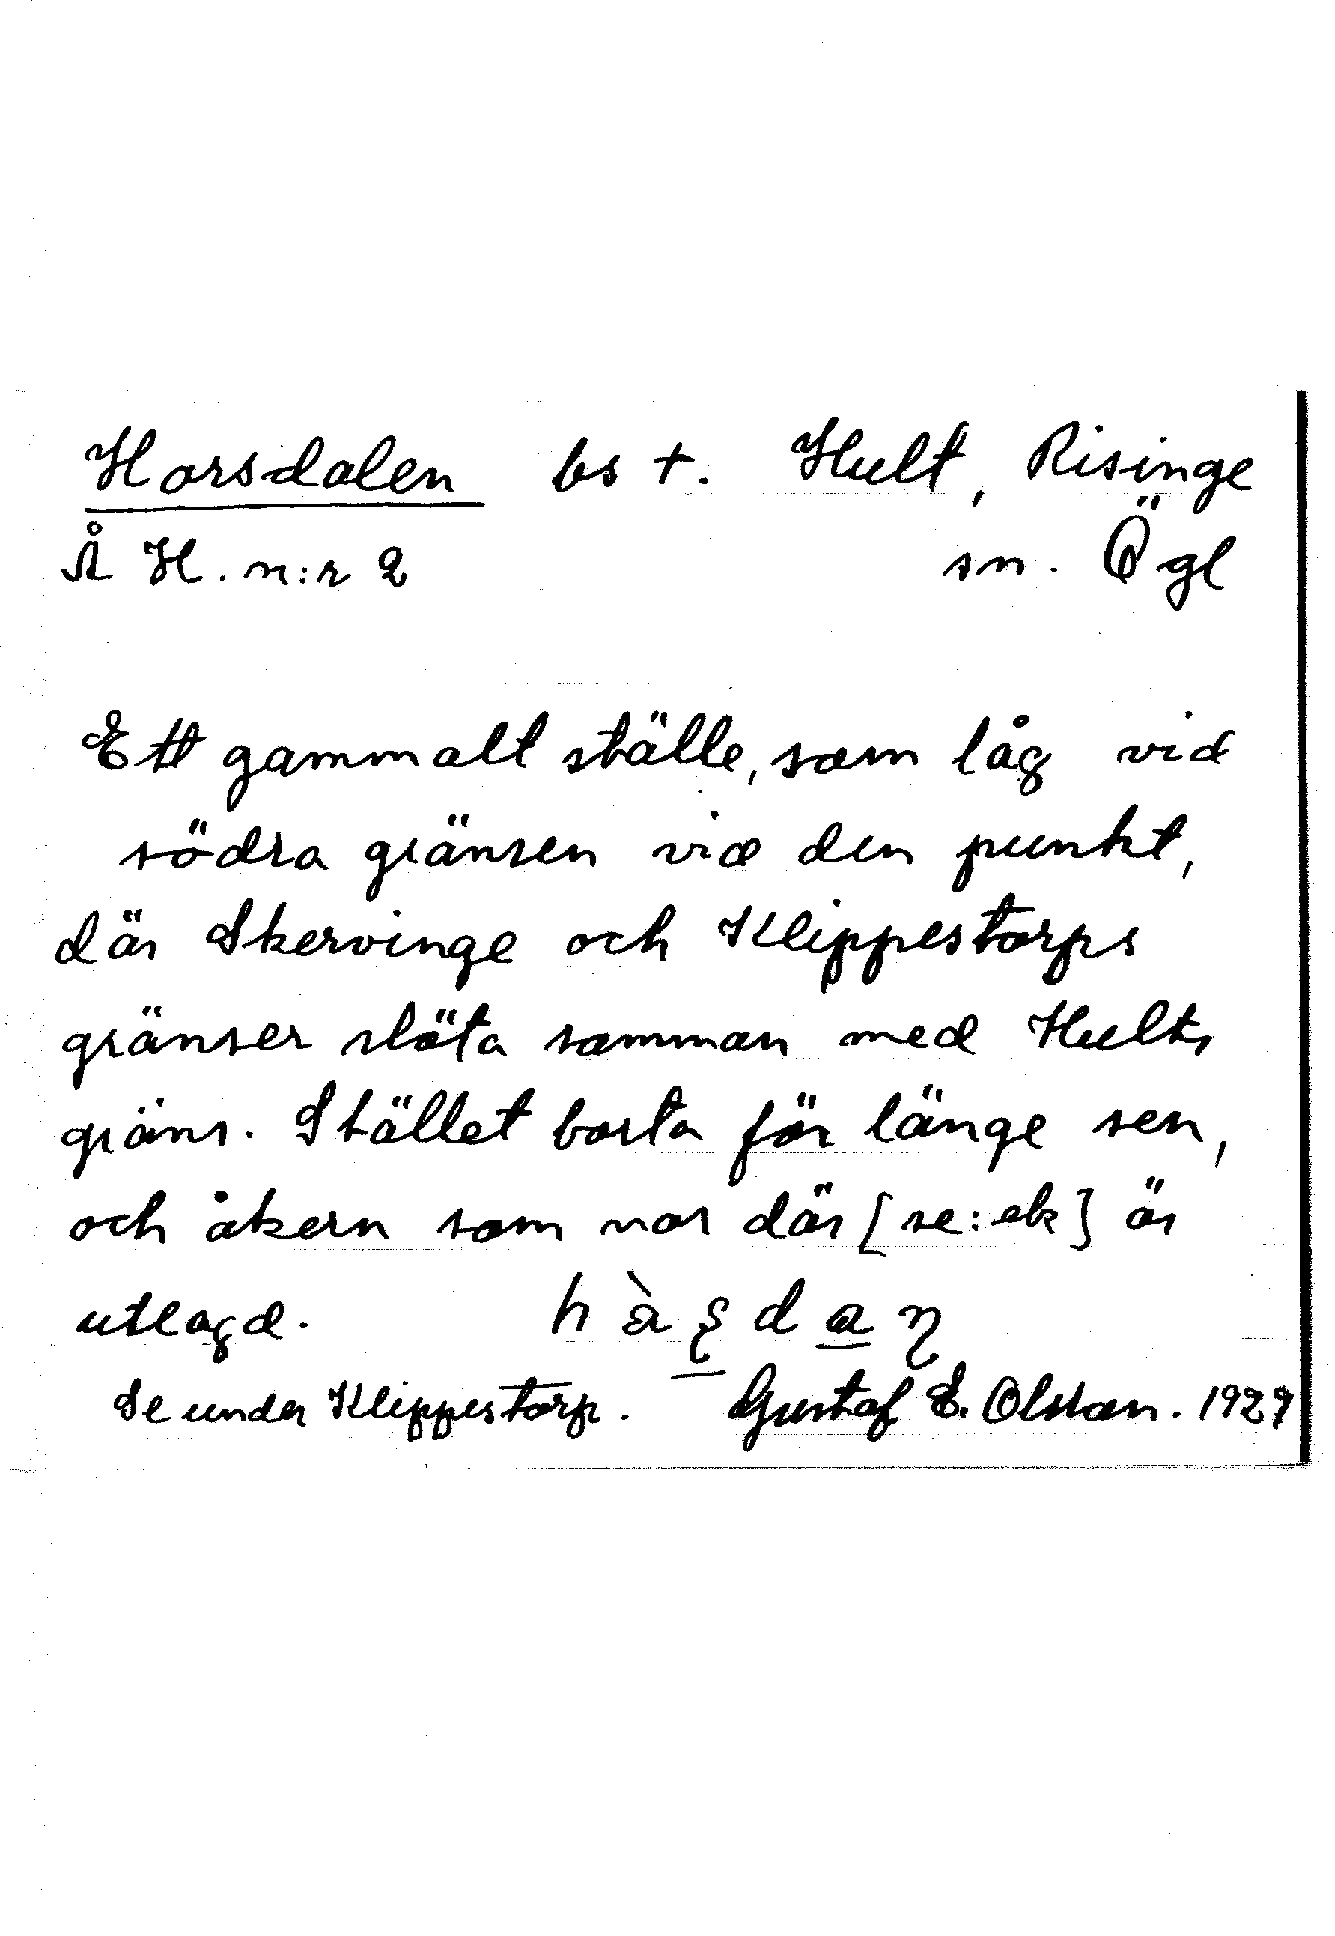 Horsdalen bs t. Hult, Risinge
Å H. n:r 2 sn. Ögl
Ett gammalt ställe, som låg vid
södra gränsen vid den punkt,
där Skervinge och Klippestorps
gränser stöta samman med Hults
gräns. Stället borta för länge sen,
och åkern som var där [se: ek] är
utlagd.
Se under Klippestorp. Gustaf E. Olsson. 1929